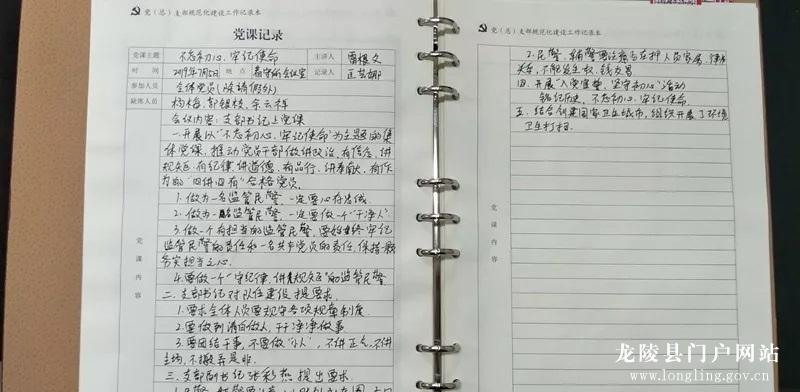 党（总）支部规范化建设工作记录本
党课记录
党课主题 不忘初心、牢记使命 主讲人
时间 2019年7月5日 地点 看守所会议室 记录人
参加人员 全体党员（除请假外）
缺席人员
党课内容
会议内容：支部书记上党课
一.开展以“不忘初心、牢记使命”为主题的集
体党课，推动党员干部做讲政治、有信念，讲
规矩、有纪律，讲道德、有品行，讲奉献、有作
为的“四讲四有”合格党员。
1.做为一名监管民警，一定要心存法纪。
2.做为一名监管民警，一定要做一个“干净人”
3.做一个有担当的监管民警，要始终牢记
监管民警的责任和一名共产党员的责任，保持
务实担当之心。
4.要做一个“守纪律、讲规矩”的监管民警
二.支部书记对队伍建设提要求
1.要求全体人员要规守各项规章制度
2.要做到清白做人，干干净净做事
3.要团结干事，不要做“小人”，不讲正气，不讲
不搬弄是非。
三.支部副书记张彩杰提出要求
党（总）支部规范化建设工作记录本
党课内容
2.民警、辅警要注意与在押人员家属、
关系，不能发生权、钱交易
四.开展“入党宣誓，坚守初心”活动
铭记历史，不忘初心，牢记使命
五.结合创建国家卫生城市，组织开展了环境
卫生打扫。
龙陵县门户网站
www.longling.gov.cn